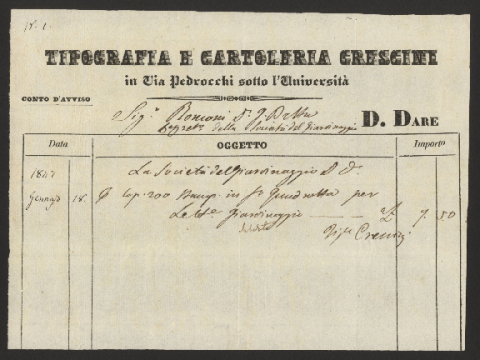 N. 1.
TIPOGRAFIA E CARTOLERIA CRESCINI
in Via Pedrocchi sotto l'Università
CONTO D'AVVISO
Sig.r Ronconi
Segret. della Società del Giardinaggio
D. DARE
Data OGGETTO Importo
1847 La Società del Giardinaggio D
Gennajo 18. Cop. 200 in f. per
Giardinaggio 7. 50
Crescini